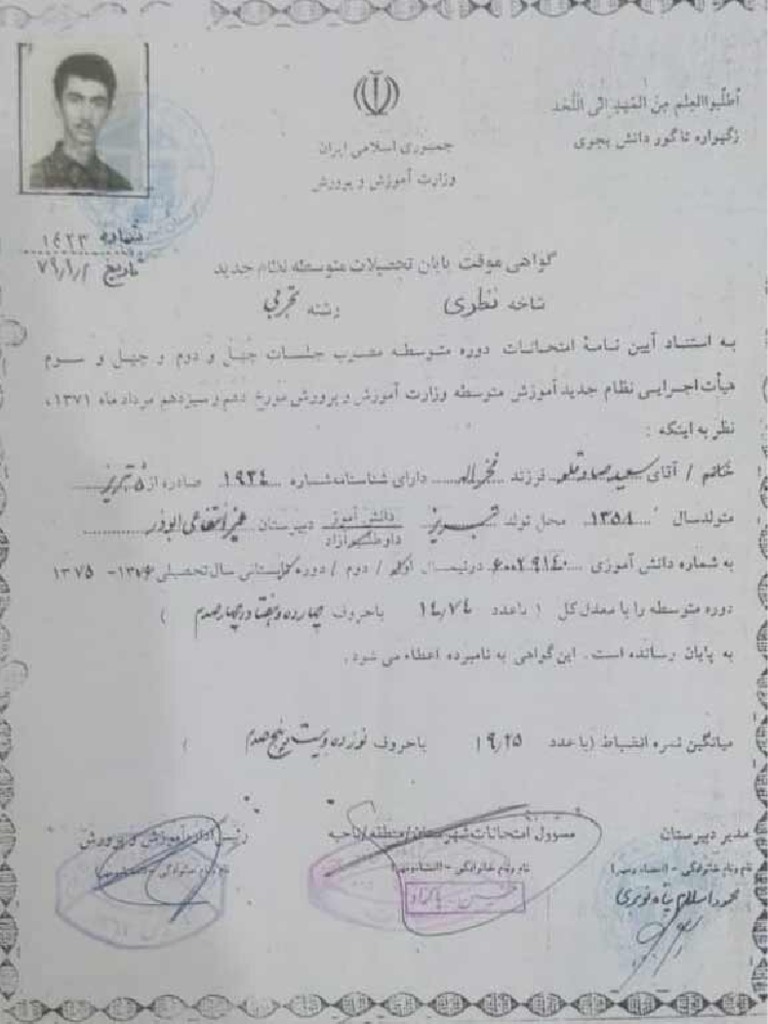 أطلبوا العلم من المهد الی اللحد
زگهواره تا گور دانش بجوی
جمهوری اسلامی ایران
وزارت آموزش و پرورش
شماره ۱۴۲۳
تاریخ ۷۹/۱/۲
گواهی موقت پایان تحصیلات متوسطه نظام جدید
شاخه نظری رشته تجربی
به استناد آیین نامهٔ امتحانات دوره متوسطه مصوب جلسات چهل و دوم و چهل و سوم
هیأت اجرایی نظام جدید آموزش متوسطه وزارت آموزش و پرورش مورخ دهم و سیزدهم مرداد ماه ۱۳۷۱،
نظر به اینکه :
خانم / آقای سعید فرزند دارای شناسنامه شماره ۱۹۲۴ صادره از تبریز
متولد سال ۱۳۵۸ محل تولد تبریز دانش آموز / داوطلب آزاد دبیرستان غیرانتفاعی ابوذر
به شماره دانش آموزی ۶۰۰۲۹۱۴۰ در نیمسال اول / دوم / دوره تابستانی سال تحصیلی ۱۳۷۶ - ۱۳۷۵
دوره متوسطه را با معدل کل ( با عدد ۱۴/۷۴ با حروف چهارده و هفتاد و چهار صدم )
به پایان رسانده است . این گواهی به نامبرده اعطاء می شود .
میانگین نمره انضباط (با عدد ۱۹/۲۵ با حروف نوزده و بیست و پنج صدم )
مدیر دبیرستان مسوول امتحانات شهرستان / منطقه / ناحیه رئیس اداره آموزش و پرورش
نام و نام خانوادگی - (امضاء و مهر) نام و نام خانوادگی - (امضاء و مهر) نام و نام خانوادگی - (امضاء و مهر)
محمود اسلام پناه نوبری